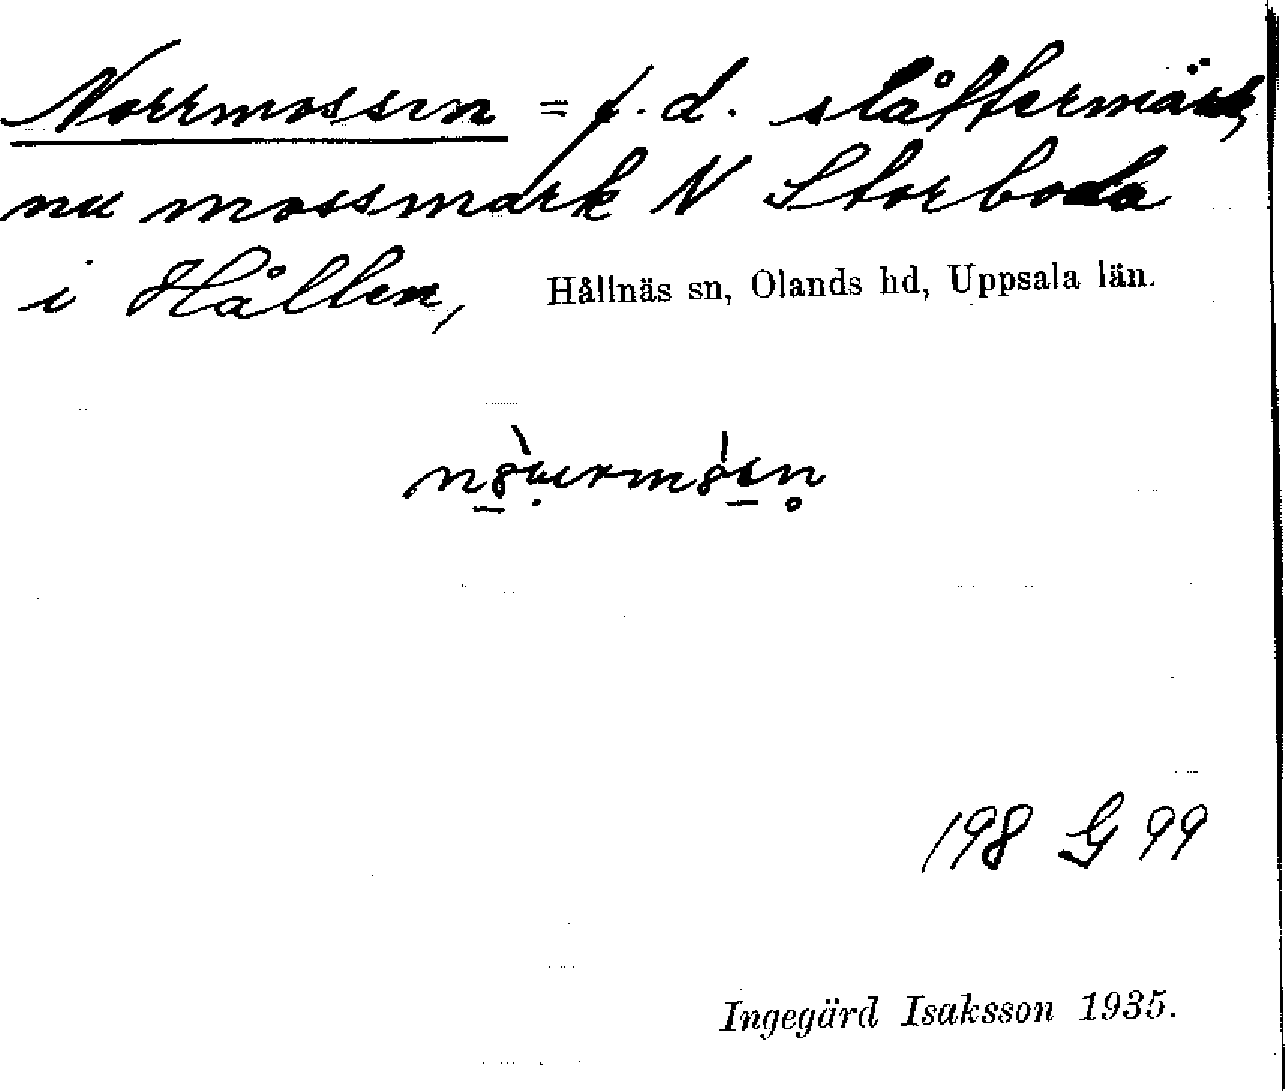 Norrmossen = f. d. slåttermark,
nu mossmark N Storboda
i Hållen, Hållnäs sn, Olands hd, Uppsala län.
198 G 99
Ingegärd Isaksson 1935.